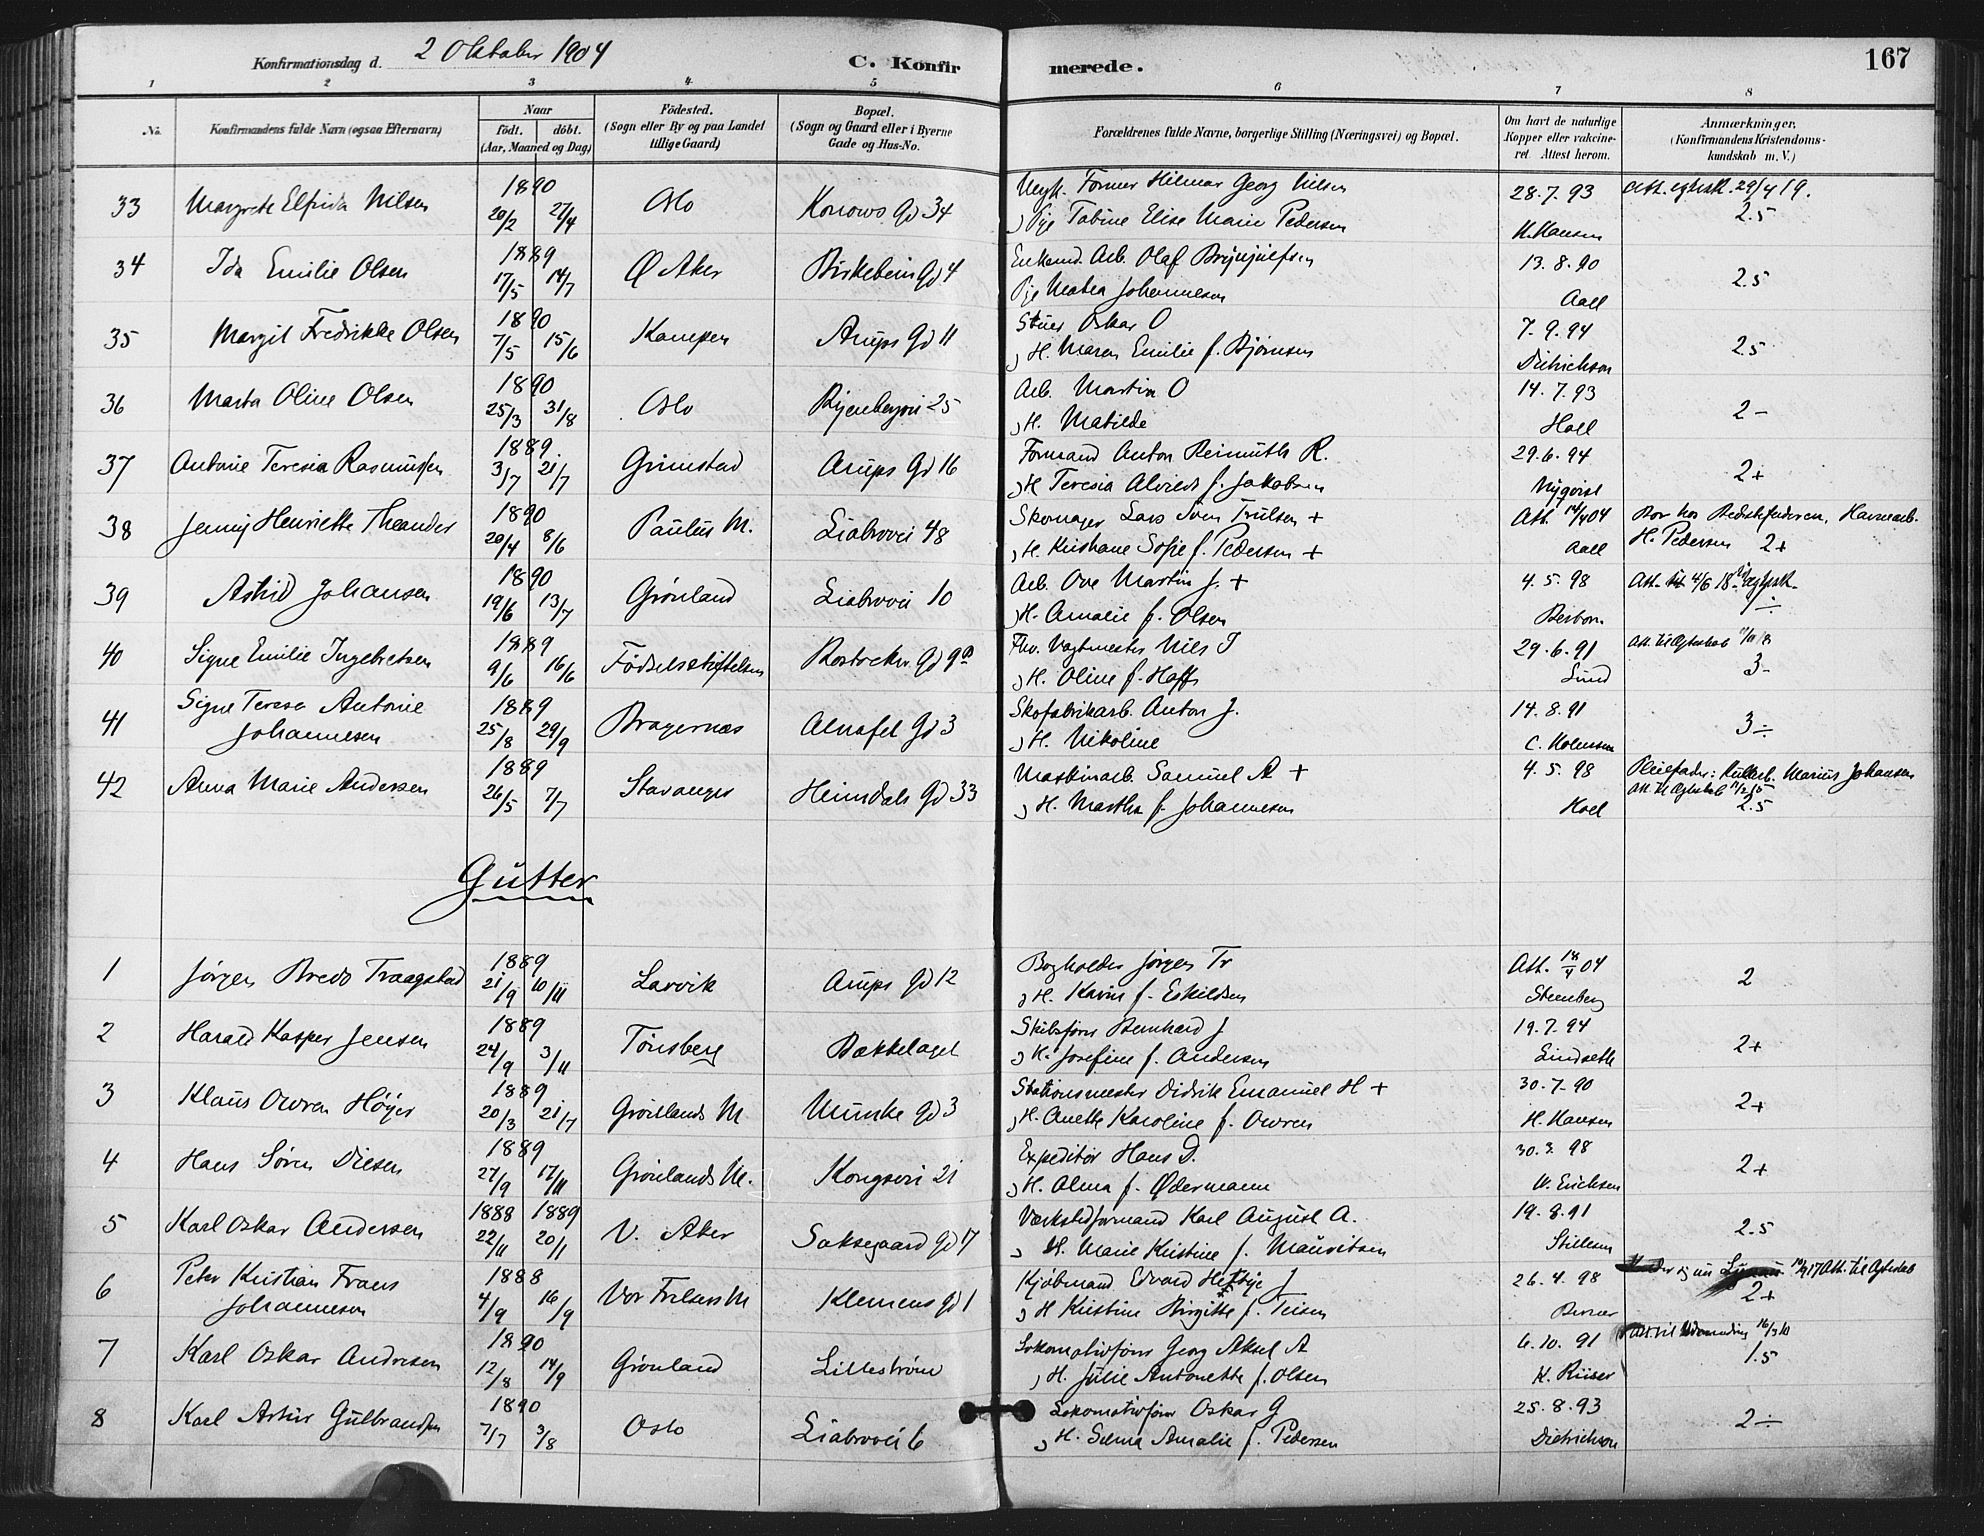 Konfirmationsdag d. 2 Oktober 1904 C. Konfirmerede. 167
1 2 3 4 5 6 7 8
No. Konfirmandens fulde Navn (ogsaa Efternavn) Naar födt. döbt. (Aar, Maaned og Dag) Födested. (Sogn eller By og paa Landet tillige Gaard) Bopæl. (Sogn og Gaard eller i Byerne Gade og Hus-No. Forældrenes fulde Navne, borgerlige Stilling (Næringsvei) og Bopæl. Om havt de naturlige Kopper eller vakcineret Attest herom. Anmærkninger, (Konfirmandens Kristendomskundskab m. V.)
33 Margrete Elfrida Nilsen 1890 20/2 27/4 Oslo Konows Gd 34 Ungk. Former Hilmar Georg Nilsen
Pige Tobine Elise Marie Pedersen 28.7.93 H. Hansen 29/4 19. 2.5
34 Ida Emilie Olsen 1889 17/5 14/7 Ø Aker Birkebein Gd 4 Enkemd. Arb. Olaf Brynjulfsen
Pige Matea Johannesen 13.8.90 Aall 2.5
35 Margit Fredrikke Olsen 1890 7/5 15/6 Kampen Arups Gd 11 Stuer Oskar O
H. Maren Emilie f. Bjørnsen 7.9.94 Dietrichson 2.5
36 Marta Oline Olsen 1890 25/3 31/8 Oslo Ryenbergvei 25 Arb. Martin O
H. Matilde 14.7.93 Hall 2-
37 Antonie Teresia Rasmussen 1889 3/7 21/7 Grimstad Arups Gd 16 Formand Anton Reimuth R.
H Teresia Alvilde f. Jakobsen 29.6.94 Nyqvist 2+
38 Jenny Henriette Theander 1890 20/4 8/6 Paulus M. Liabrovei 48 Skomager Lars Sven Trulsen +
H. Kristiane Sofie f. Pedersen + Att. 14/4 04 Aall Bor hos Bedstefaderen, Havnearb. H. Pedersen 2+
39 Astrid Johansen 1890 19/6 13/7 Grønland Liabrovei 10 Arb. Ove Martin J. +
H. Amalie f. Olsen 4.5.98 Att. 4/6 18
40 Signe Emilie Ingebretsen 1889 9/6 16/6 Födselsstiftelsen Rostocker Gd 9a Fhv. Vagtmester Nils I
H. Oline f. Hoff 29.6.91 Lund Att. til Ægteskab 3-
41 Signe Teresa Antonie Johannesen 1889 25/8 29/9 Bragernæs Alnafet Gd 3 Skofabrikarb. Anton J.
H. Nikoline 14.8.91 C. Holmsen 3÷
42 Anna Marie Andersen 1889 26/5 7/7 Stavanger Heimdals Gd 33 Maskinarb. Samuel A +
H. Martha f. Johannesen 4.5.98 Hall Pleiefader: Kullarb. Marius Johansen
Att. til Ægteskab 2.5
Gutter
1 Jørgen Bredo Traagstad 1889 21/9 10/11 Larvik Arups Gd 12 Bogholder Jørgen Tr
H. Karin f. Eskildsen Att. 18/4 04 Steenberg 2
2 Harald Kasper Jensen 1889 24/9 3/11 Tönsberg Bækkelaget Skibsfører Bernhard J
H. Josefine f. Andersen 19.7.94 Lindseth 2+
3 Klaus Owren Höyer 1889 20/3 21/7 Grönlands M Munke Gd 3 Stationsmester Didrik Emanuel H +
H. Anette Karoline f. Owren 30.7.90 H. Hansen 2+
4 Hans Sören Diesen 1889 27/9 17/11 Grönlands M. Kongsvei 21 Expeditör Hans D.
H. Alma f. Ødermann 30.3.98 W. Erichsen 2+
5 Karl Oskar Andersen 1888 22/11 1889 20/1 V. Aker Saksegaard Gd 7 Værkstedformand Karl August A.
H. Marie Kristine f. Mauritsen 19.8.91 Stillesen 2.5
6 Peter Kristian Frans Johannesen 1888 4/9 16/9 Vor Frelsers M Klemens Gd 1 Kjøbmand Edvard J
H Kristine Birgitte f. Teisen 26.4.98 Att. til Ægteskab 2+
7 Karl Oskar Andresen 1890 12/8 14/9 Grønland Lilleström Lokomotivförer Georg Aksel A
H. Julie Antonette f. Olsen 6.10.91 K. Riiser Att. til 1.5
8 Karl Artur Gulbrandsen 1890 7/7 3/8 Oslo Liabrovei 6 Lokomotivförer Oskar G
H. Selma Amalie f. Pedersen 25.8.93 Dietrichson 2-